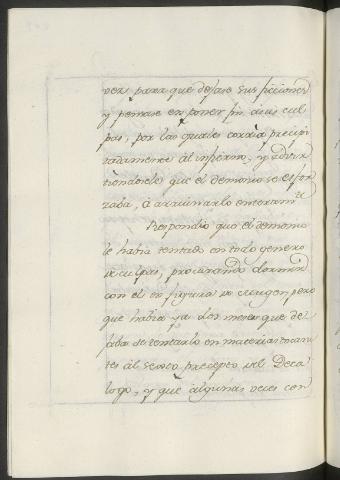 ver, para que dejase sus ficciones
y pensase en poner fin à sus cul
pas, por las quales corria precipi
tadamente al infierno, y advir
tiendosele que el demonio se esfor
zaba, à arruinarlo enteram.te
Respondio que el demonio
le havia tentado en todo genero
de culpas, procurando dormir
con el en figura de muger, pero
que havia ya dos meses que de
jaba de tentarlo en materias tocan
tes àl sexto precepto del Deca
logo, y que algunas veces con